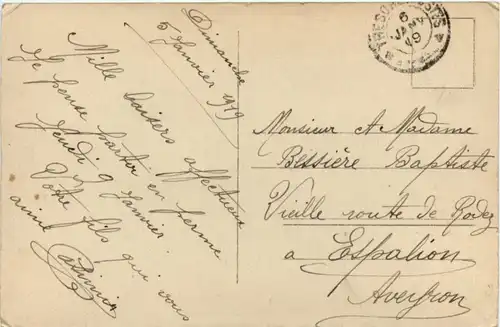 Dimanche
5 Janvier 1919
Mille baisers affectueux
Je pense partir en perme
Jeudi 9 Janvier.
Votre fils qui vous
aime
TRESOR ET POSTES
6
JANV
19
Monsieur et Madame
Bessière Baptiste
Vieille route de Rodez
à Espalion
Aveyron